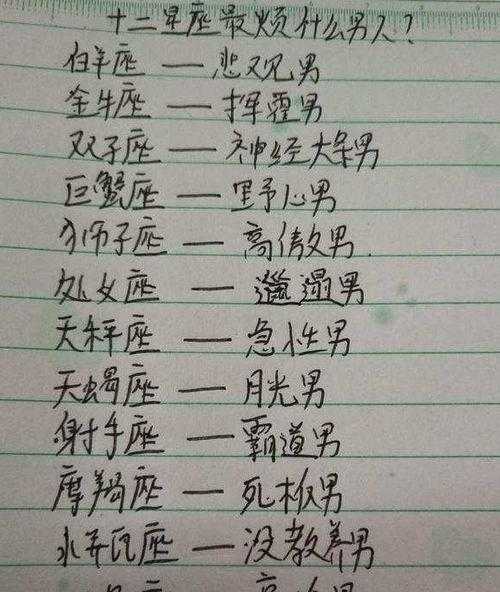 十二星座最烦什么男人?
白羊座 — 悲观男
金牛座 — 挥霍男
双子座 — 神经大条男
巨蟹座 — 野心男
狮子座 — 高傲男.
处女座 — 邋遢男
天秤座 — 急性男
天蝎座 — 月光男
射手座 — 霸道男
摩羯座 — 死板男
水瓶座 — 没教养男